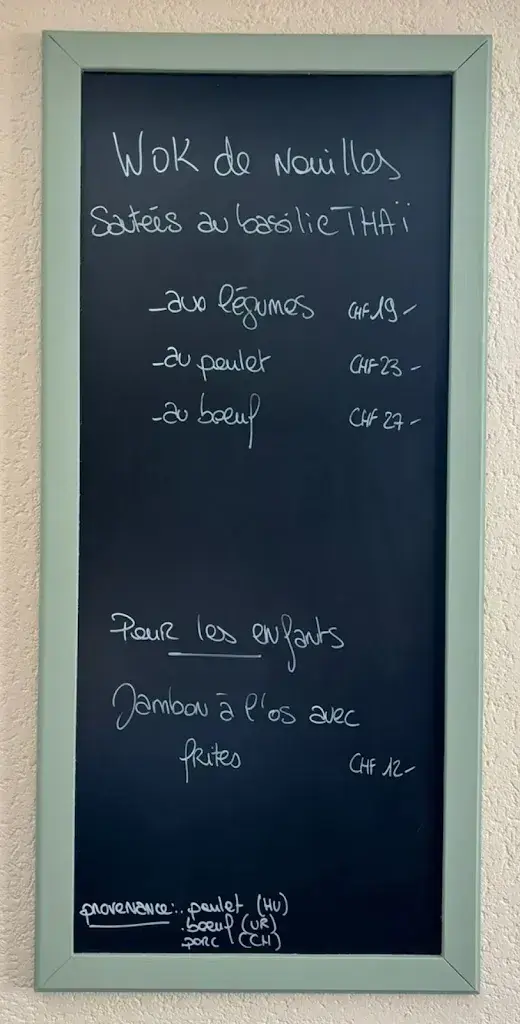 WOK de Nouilles
Sautées au basilic THAÏ
-aux légumes CHF 19-
-au poulet CHF 23-
-au boeuf CHF 27-
Pour les enfants
Jambon à l'os avec
frites CHF 12-
provenance: . poulet (HU)
. boeuf (UR)
. porc (CH)